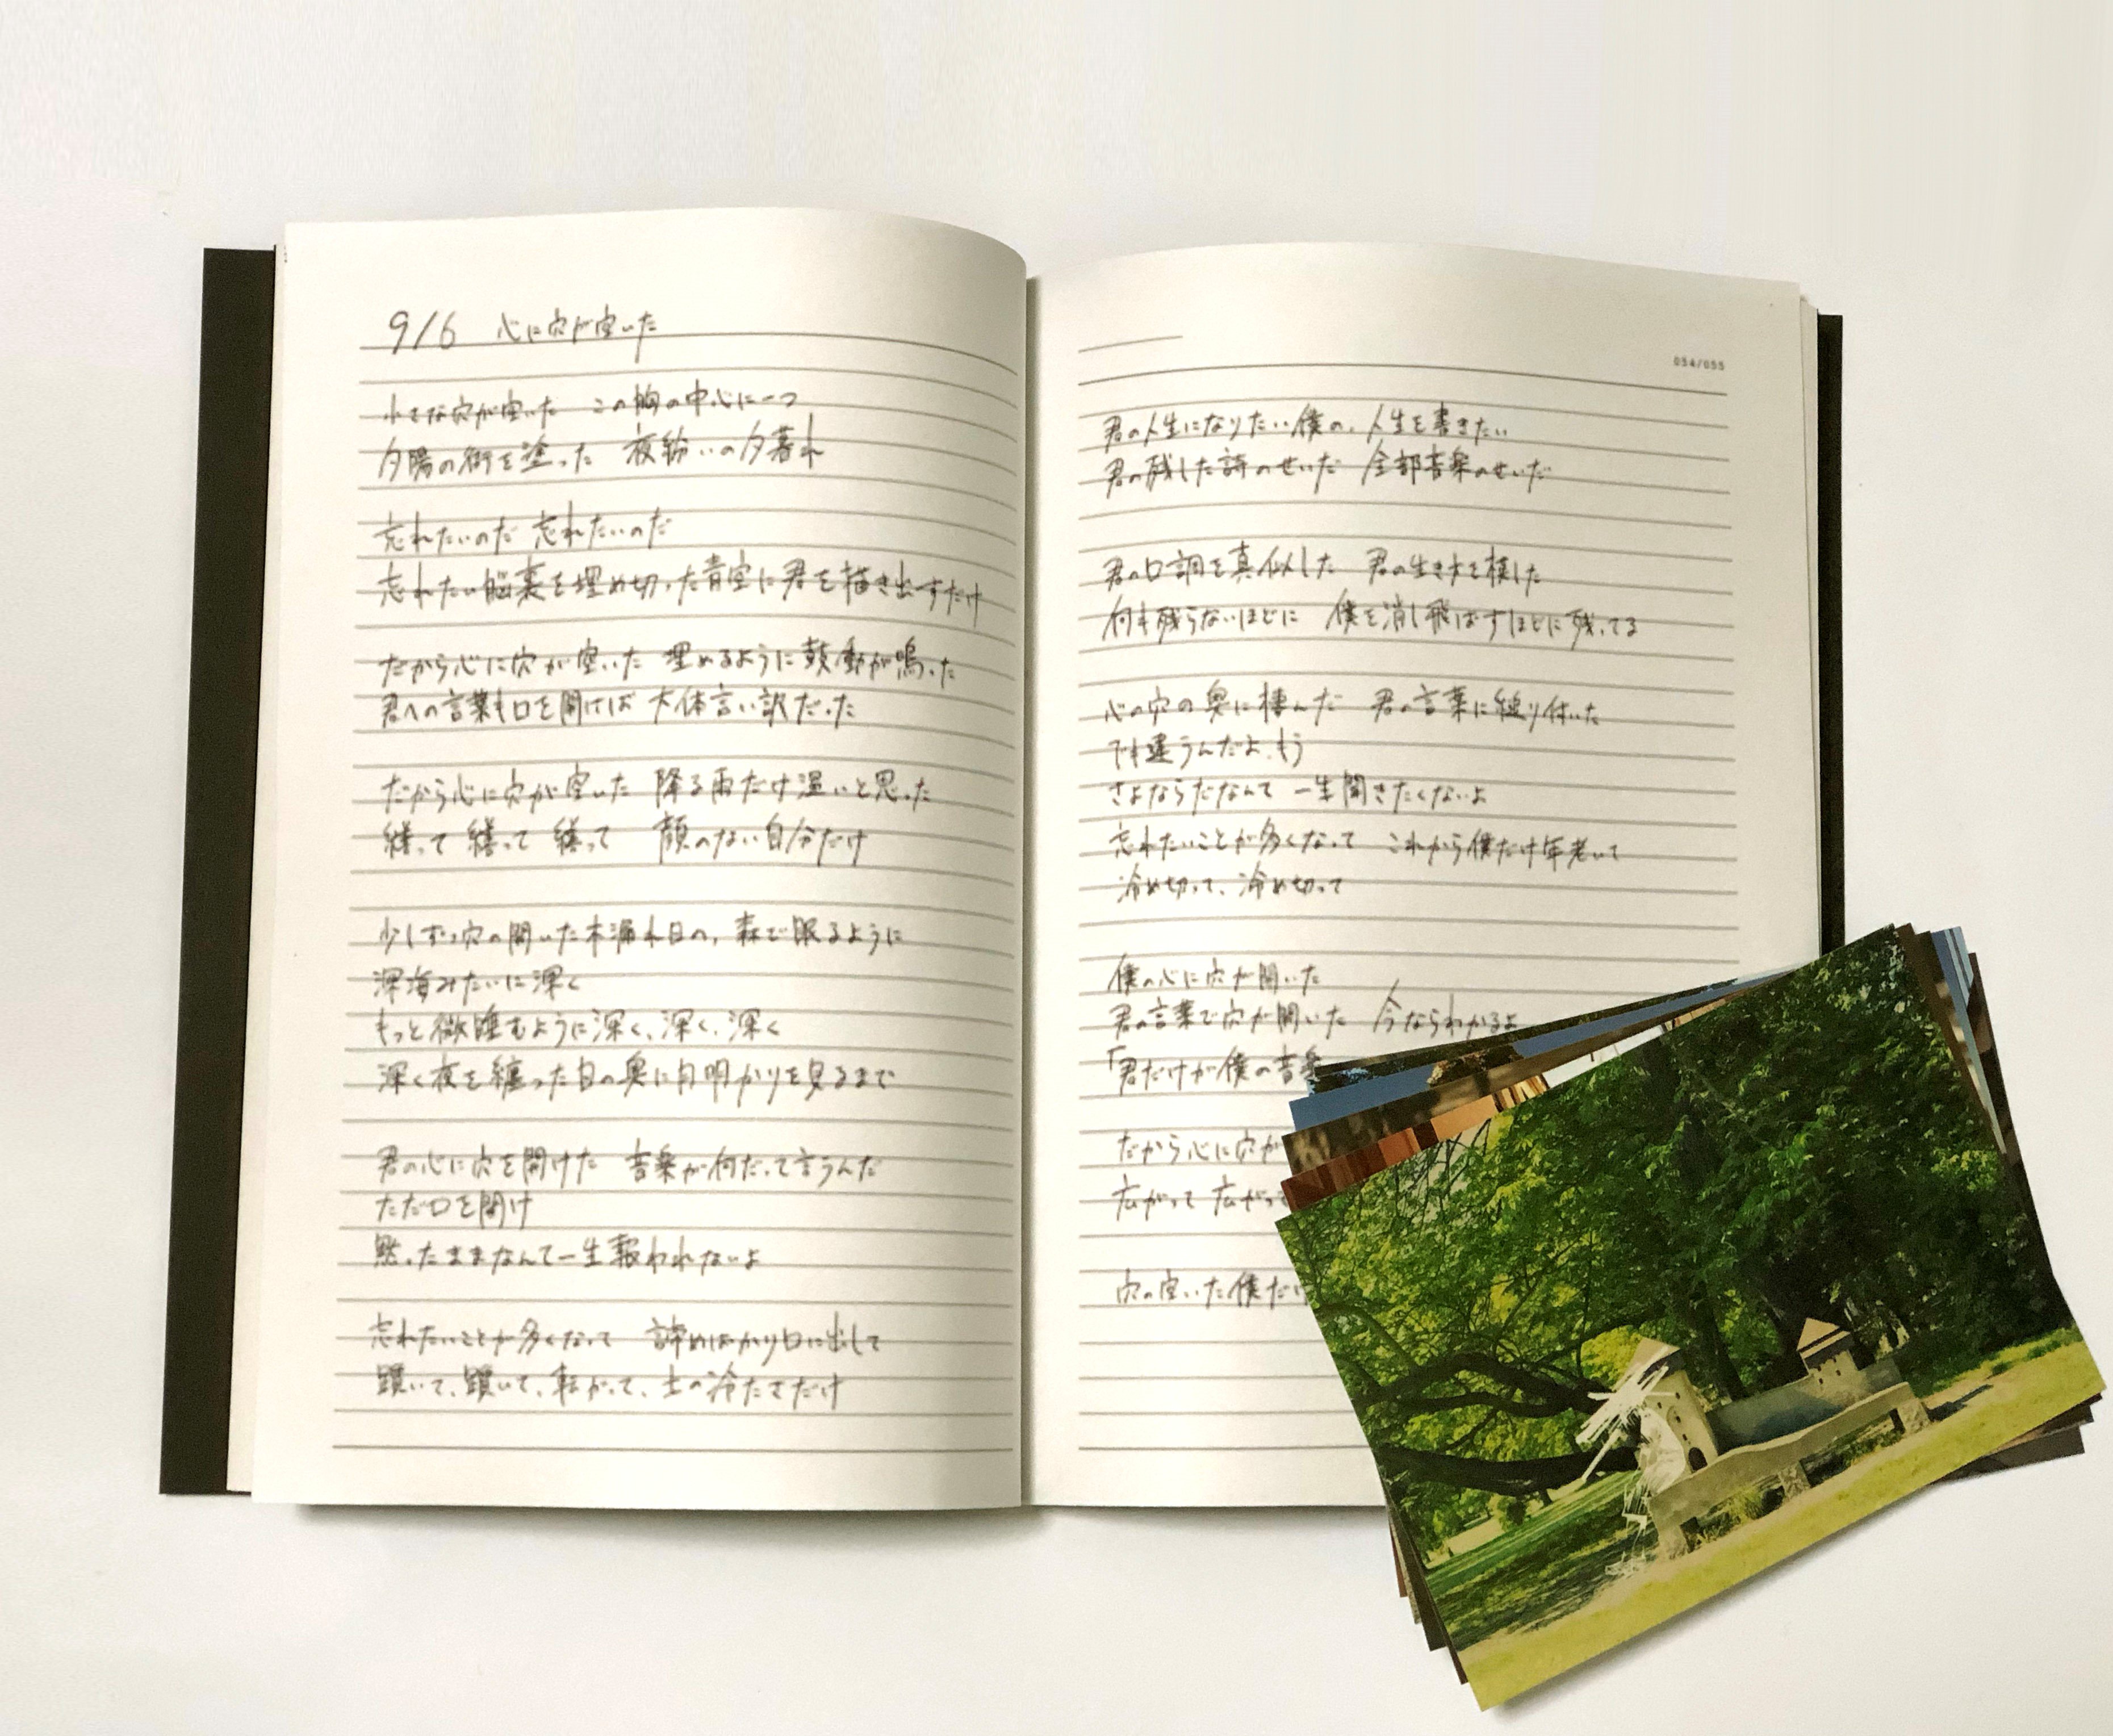 9/6 心に穴が空いた
小さな穴が空いた この胸の中心に一つ
夕陽の街を塗った 夜紛いの夕暮れ
忘れたいのだ 忘れたいのだ
忘れたい脳裏を埋め切った青空に君を描き出すだけ
だから心に穴が空いた 埋めるように鼓動が鳴った
君への言葉も口を開けば 大体言い訳だった
だから心に穴が空いた 降る雨だけ温いと思った
繕って 繕って 繕って 顔のない自分だけ
少しずつ穴の開いた木漏れ日の、森で眠るように
深海みたいに深く
もっと微睡むように深く、深く、深く
深く夜を纏った目の奥に月明かりを見るまで
君の心に穴を開けた 音楽が何だって言うんだ
ただ口を開け
黙ったままなんて一生報われないよ
忘れたいことが多くなって 諦めばかり口に出して
躓いて、躓いて、転がって、土の冷たさだけ
054/055
君の人生になりたい僕の、人生を書きたい
君の残した詩のせいだ 全部音楽のせいだ
君の口調を真似した 君の生き方を模した
何も残らないほどに 僕を消し飛ばすほどに残ってる
心の穴の奥に棲んだ 君の言葉に縋り付いた
でも違うんだよ、もう
さよならだなんて 一生聞きたくないよ
忘れたいことが多くなって これから僕だけ年老いて
冷め切って、冷め切って
僕の心に穴が開いた
君の言葉で穴が開いた 今ならわかるよ
「君だけが僕の音楽
だから心に穴が
広がって 広がって
穴の空いた僕だけ